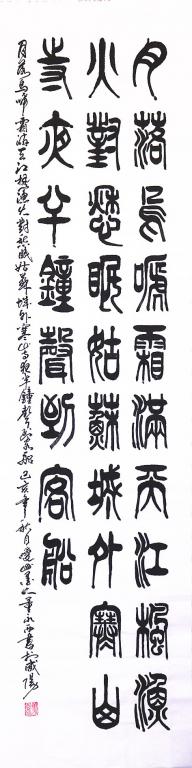 月落烏嗁霜滿天江楓漁
火對愁眠姑蘇城外寒山
寺夜半鐘聲到客船
月落烏啼霜滿天江楓漁火對愁眠姑蘇城外寒山寺夜半鐘聲到客船 己亥年秋月 書於咸陽